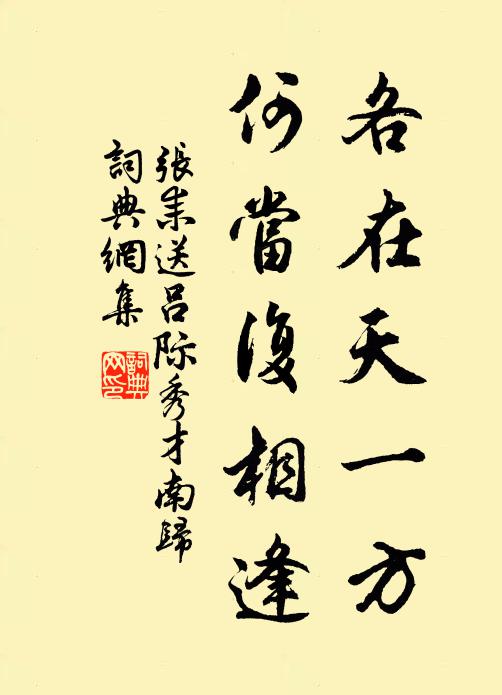 各在天一方
何當復相逢
張耒送呂際秀才南歸
詞典網集
詞典
网印